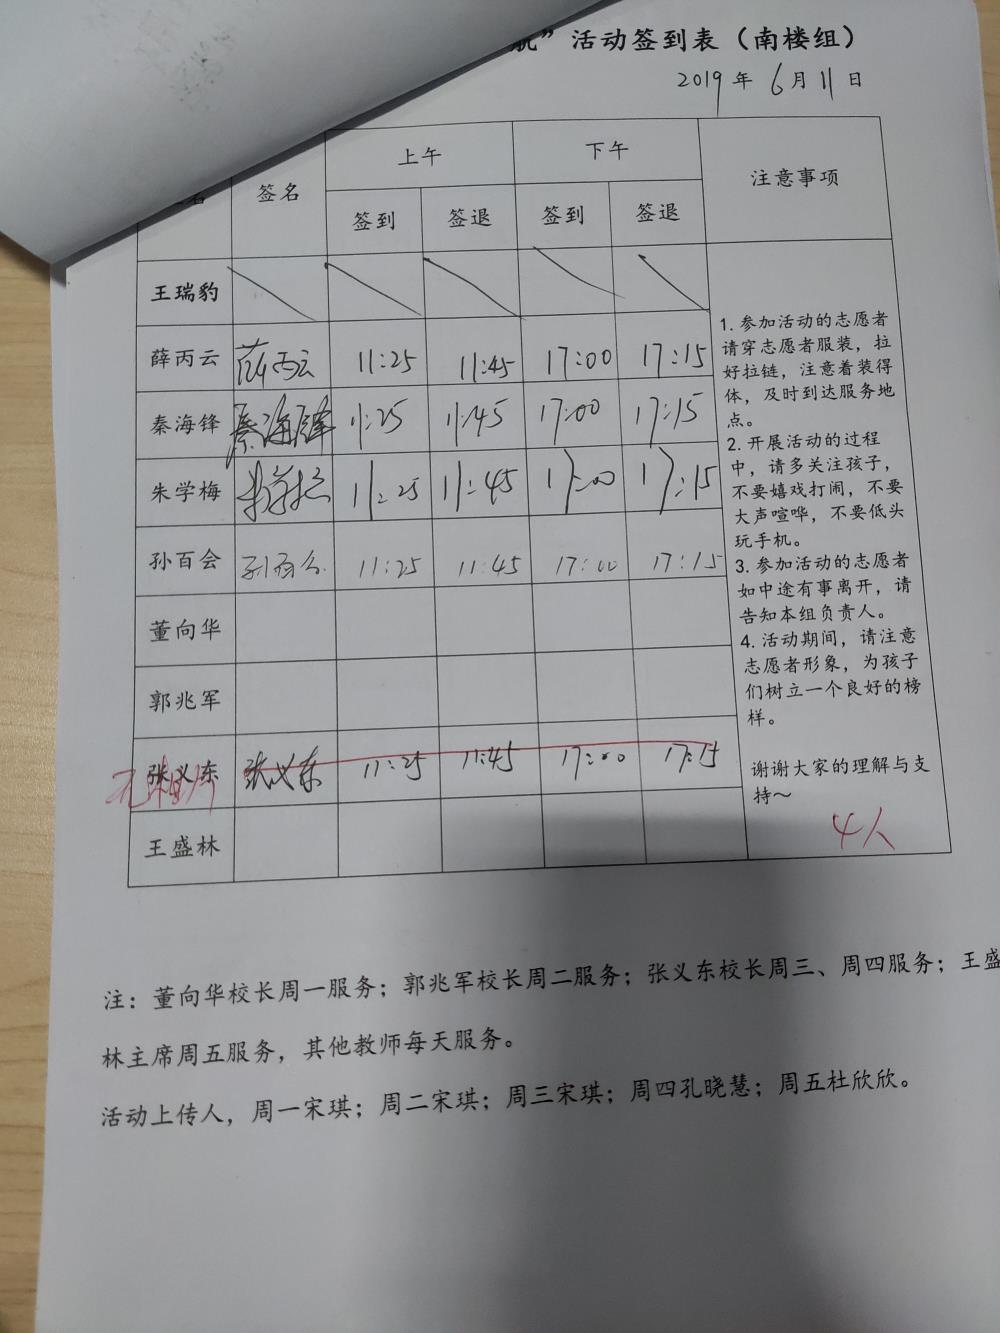 航”活动签到表（南楼组）
2019年6月11日
名 签名 上午 下午 注意事项
签到 签退 签到 签退
王瑞豹
薛丙云 薛丙云 11:25 11:45 17:00 17:15
秦海锋 秦海锋 11:25 11:45 17:00 17:15
朱学梅 11:25 11:45 17:00 17:15
孙百会 孙百会 11:25 11:45 17:00 17:15
董向华
郭兆军
张义东 张义东 11:25 11:45 17:00 17:15
王盛林
1. 参加活动的志愿者
请穿志愿者服装，拉
好拉链，注意着装得
体，及时到达服务地
点。
2. 开展活动的过程
中，请多关注孩子，
不要嬉戏打闹，不要
大声喧哗，不要低头
玩手机。
3. 参加活动的志愿者
如中途有事离开，请
告知本组负责人。
4. 活动期间，请注意
志愿者形象，为孩子
们树立一个良好的榜
样。
谢谢大家的理解与支
持～
4人
注：董向华校长周一服务；郭兆军校长周二服务；张义东校长周三、周四服务；王盛
林主席周五服务，其他教师每天服务。
活动上传人，周一宋琪；周二宋琪；周三宋琪；周四孔晓慧；周五杜欣欣。